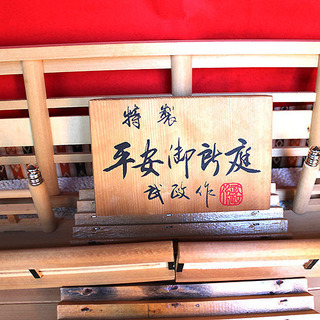 特製
平安御所庭
武政作